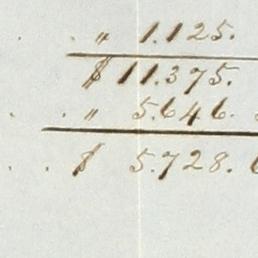 . . " 1.125.
$ 11.375.
. . " 5.646.
. . $ 5.728.